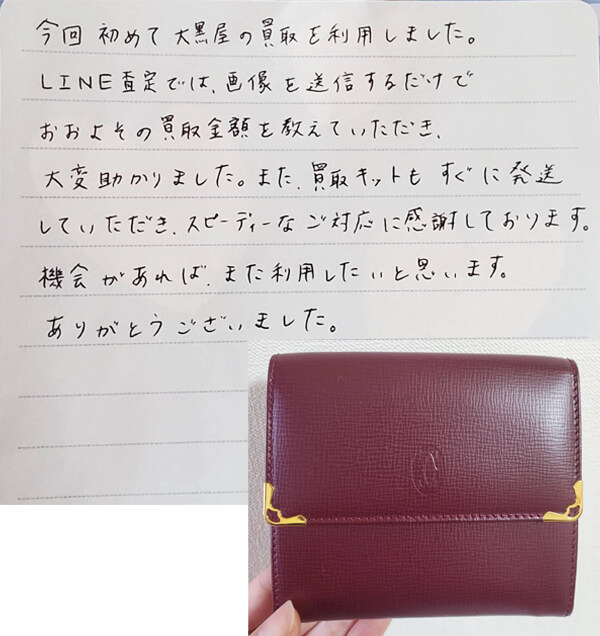 今回初めて大黒屋の買取を利用しました。
LINE査定では、画像を送信するだけで
おおよその買取金額を教えていただき、
大変助かりました。また、買取キットもすぐに発送
していただき、スピーディーなご対応に感謝しております。
機会があれば、また利用したいと思います。
ありがとうございました。